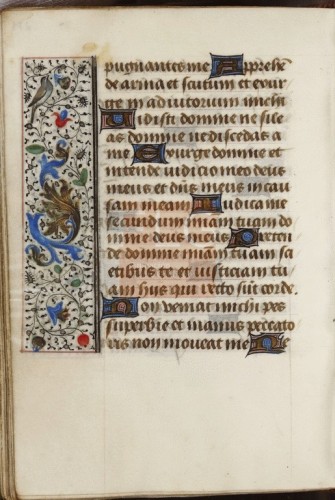 pugnantes me Apprehe
de arma et scutum et exur
ge in adiutorium michi
Vidisti domine ne sile
as domine ne discedas a
me Exurge domine et
intende iudicio meo deus
meus et dn̄s meus in cau
sam meam Iudica me
secundum iustitiam tuam do
mine deus meus Preten
de domine mīam tuam sci
entibus te et iusticiam tu
am hys qui recto sūt corde.
Non veniat michi pes
superbie et manus peccato
ris non moveat me